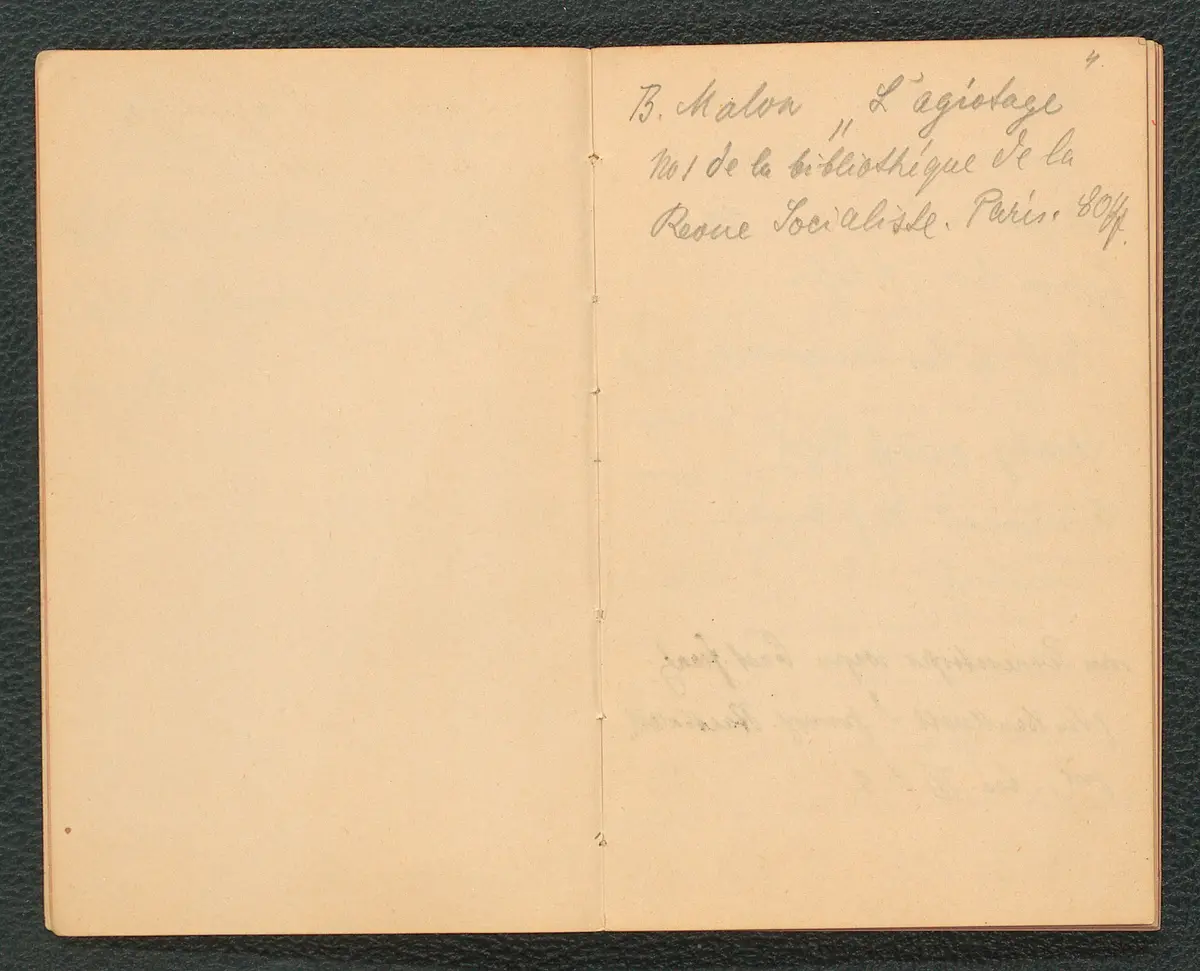 4.
B. Malon „L'agiotage
No 1 de la bibliothéque de la
Revue Socialiste. Paris. 80